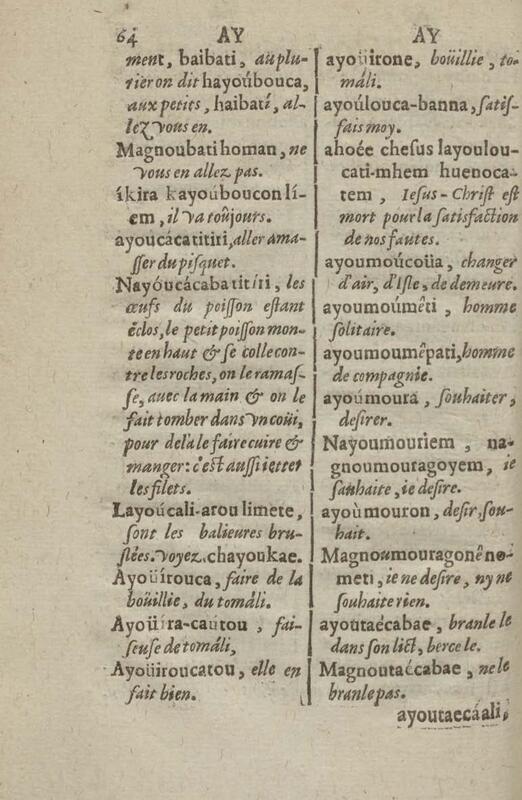 64 AY AY
ment, baibati, au plu-
rier on dit hayoúbouca,
aux petits, haibatí, al-
lez vous en.
Magnoubati homan, ne
vous en allez pas.
íkira kayoúboucon lí-
em, il va toûjours.
ayoucácatitiri, aller ama-
sser du pisquet.
Nayóucácaba titíri, les
œufs du poisson estant
éclos, le petit poisson mon-
te en haut & se colle con-
tre les roches, on le ramas-
se, avec la main & on le
fait tomber dans vn coüi,
pour de là le faire cuire &
manger: c'est aussi ietter
les filets.
Layoúcali-arou limete,
sont les balieures bru-
slées. voyez, chayoukae.
Ayoüírouca, faire de la
boüillie, du tomáli.
Ayoüíra-cautou, fai-
seuse de tomáli,
Ayoüiroucatou, elle en
fait bien.
ayoüirone, boüillie, to-
máli.
ayoúlouca-banna, satis-
fais moy.
ahoée chesus layoulou-
cati-mhem huenoca-
tem, Iesus-Christ est
mort pour la satisfaction
de nos fautes.
ayoumoúcoüa, changer
d'air, d'Isle, de demeure.
ayoumoúmêti, homme
solitaire.
ayoumoumêpati, homme
de compagnie.
ayoúmoura, souhaiter,
desirer.
Nayoumouriem, na-
gnoumouragoyem, ie
sauhaite, ie desire.
ayoùmouron, desir, sou-
hait.
Magnoumouragonêno-
meti, ie ne desire, ny ne
souhaite rien.
ayoutaécabae, branle le
dans son lict, berce le.
Magnoutaécabae, ne le
branle pas.
ayoutaecáali,